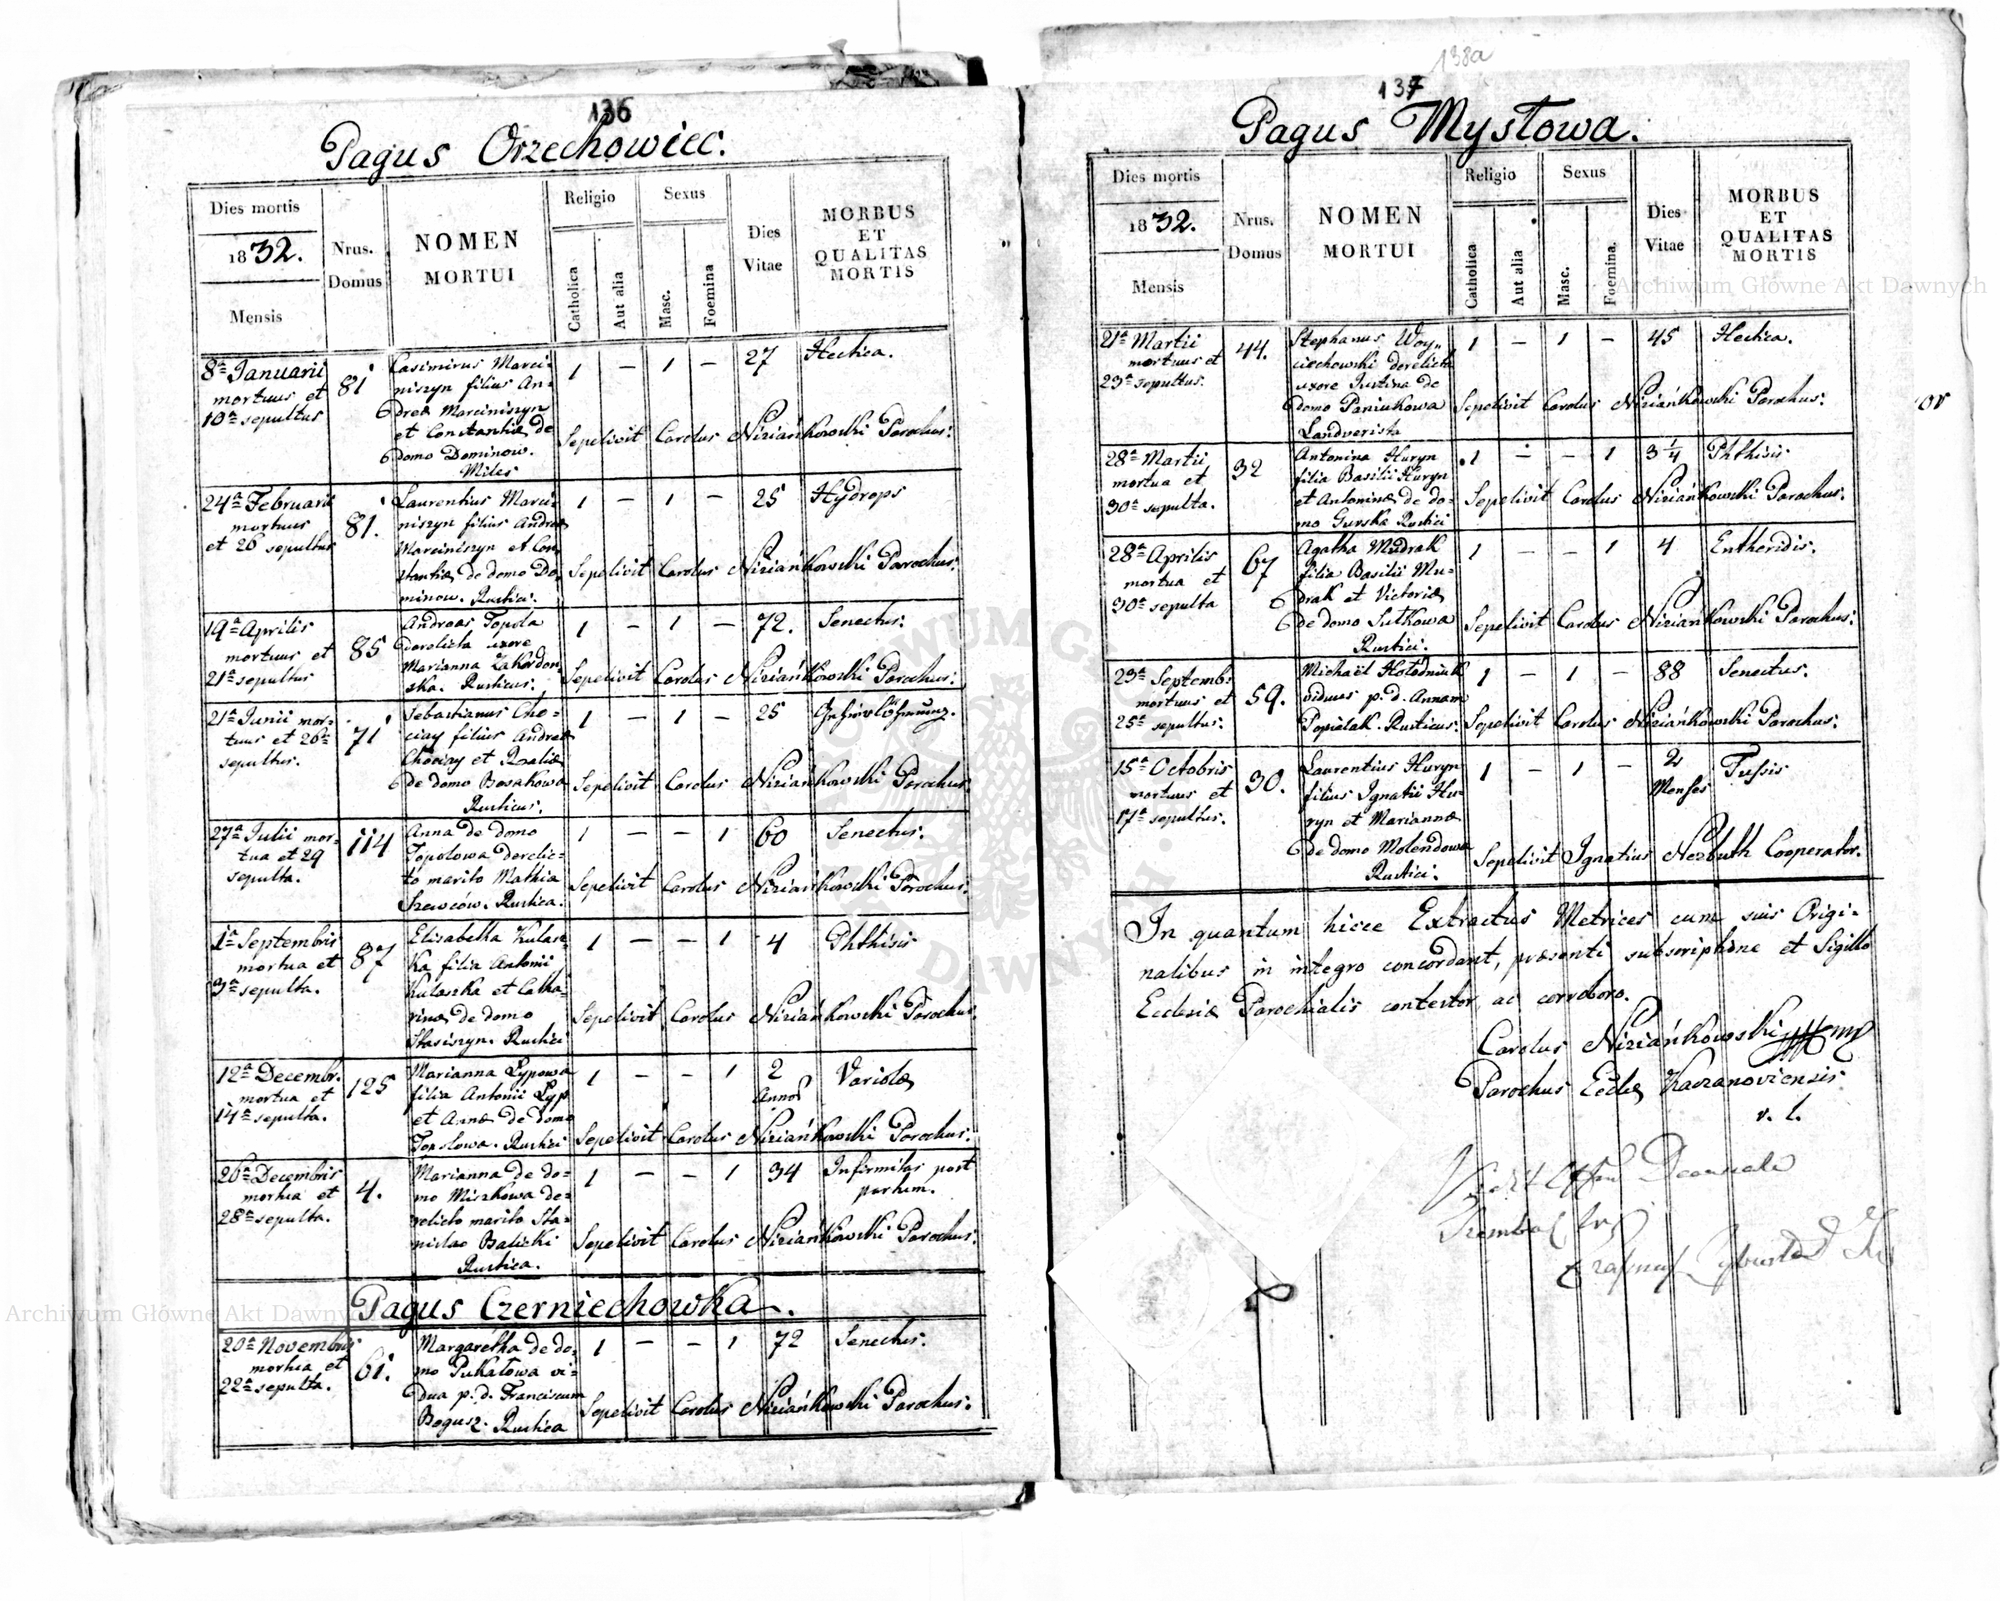 136
Pagus Orzechowiec.
Dies mortis
1832.
Mensis
Nrus.
Domus
NOMEN
MORTUI
Religio
Catholica
Aut alia
Sexus
Masc.
Foemina
Dies
Vitae
MORBUS
ET
QUALITAS
MORTIS
8ª Januarii
mortuus et
10ª sepultus
81
Casimirus Marci=
niszyn filius An=
dreæ Marciniszyn
et Constantiæ de
domo Dominow.
Miles
1 — 1 — 27 Hectica.
Sepelivit Carolus Niziańkowski Parochus.
24ª Februarii
mortuus
et 26 sepultus
81.
Laurentius Marci=
niszyn filius Andreæ
Marciniszyn et Con=
stantiæ de domo Do=
minow. Rustici.
1 — 1 — 25 Hydrops
Sepelivit Carolus Niziańkowski Parochus.
19ª Aprilis
mortuus et
21ª sepultus
85
Andreas Topola
derelicta uxore
Marianna Zakordon=
ska. Rusticus.
1 — 1 — 72. Senectus.
Sepelivit Carolus Niziańkowski Parochus.
21ª Junii mor=
tuus et
sepultus.
71
Sebastianus Cho=
ciay filius Andreæ
Chociay et Rosaliæ
de domo Bosakowa
Rusticus.
1 — 1 — 25
Sepelivit Carolus Niziańkowski Parochus.
27ª Julii mor=
tua et 29
sepulta.
114
Anna de domo
Topolowa derelic=
to marito Mathia
Szewców. Rustica.
1 — — 1 60 Senectus.
Sepelivit Carolus Niziańkowski Parochus.
1ª Septembris
mortua et
3ª sepulta.
87
Elisabetha Kulasz=
ka filia Antonii
Kulaszka et Catha=
rinæ de domo
Stasiszyn. Rustici
1 — — 1 4 Phthisis
Sepelivit Carolus Niziańkowski Parochus.
12ª Decembr.
mortua et
14ª sepulta.
125
Marianna Lypowa
filia Antonii Lyp
et Annæ de domo
Topolowa. Rustici
1 — — 1 2 Variolæ
Annos
Sepelivit Carolus Niziańkowski Parochus.
26ª Decembris
mortua et
28ª sepulta.
4.
Marianna de do=
mo Miszkowa de=
relicto marito Sta=
nislao Balicki
Rustica.
1 — — 1 34 Infirmitas post
partum.
Sepelivit Carolus Niziańkowski Parochus.
Pagus Czerniechowka.
20ª Novembris
mortua et
22ª sepulta.
61.
Margaretha de do=
mo Pukałowa vi=
dua p. d. Franciscum
Bogusz. Rustica
1 — — 1 72 Senectus.
Sepelivit Carolus Niziańkowski Parochus.
138a
137
Pagus Mysłowa.
Dies mortis
1832.
Mensis
Nrus.
Domus
NOMEN
MORTUI
Religio
Catholica
Aut alia
Sexus
Masc.
Foemina.
Dies
Vitae
MORBUS
ET
QUALITAS
MORTIS
21ª Martii
mortuus et
23ª sepultus.
44.
Stephanus Woy=
ciechowski derelicta
uxore Justina de
domo Paniukowa
Landverista
1 — 1 — 45 Hectica.
Sepelivit Carolus Niziańkowski Parochus.
28ª Martii
mortua et
30ª sepulta.
32
Antonina Huryn
filia Basilii Huryn
et Antoninæ de do=
mo Gurska Rustici
1 — — 1 3 1/4 Phthisis
Sepelivit Carolus Niziańkowski Parochus.
28ª Aprilis
mortua et
30ª sepulta
67
Agatha Mudrak
filia Basilii Mu=
drak et Victoriæ
de domo Sutkowa
Rustici.
1 — — 1 4 Entheridis.
Sepelivit Carolus Niziańkowski Parochus.
23ª Septemb.
mortuus et
25ª sepultus.
59.
Michaël Hołodniuk
viduus p. d. Annam
Popielak. Rusticus.
1 — 1 — 88 Senectus.
Sepelivit Carolus Niziańkowski Parochus.
15ª Octobris
mortuus et
17ª sepultus.
30.
Laurentius Huryn
filius Ignatii Hu=
ryn et Mariannæ
de domo Molendowa
Rustici.
1 — 1 — 2 Tussis
Menses
Sepelivit Ignatius Herbuth Cooperator.
In quantum hicce Extractus Metrices cum suis Origi=
nalibus in integro concordant, præsenti subscriptione et Sigillo
Ecclesiæ Parochialis contestor, ac corroboro.
Carolus Niziańkowski mp
Parochus Eccles Kaczanoviensis
v. l.
Decanale
Archiwum Główne Akt Dawnych
Archiwum Główne Akt Dawnych